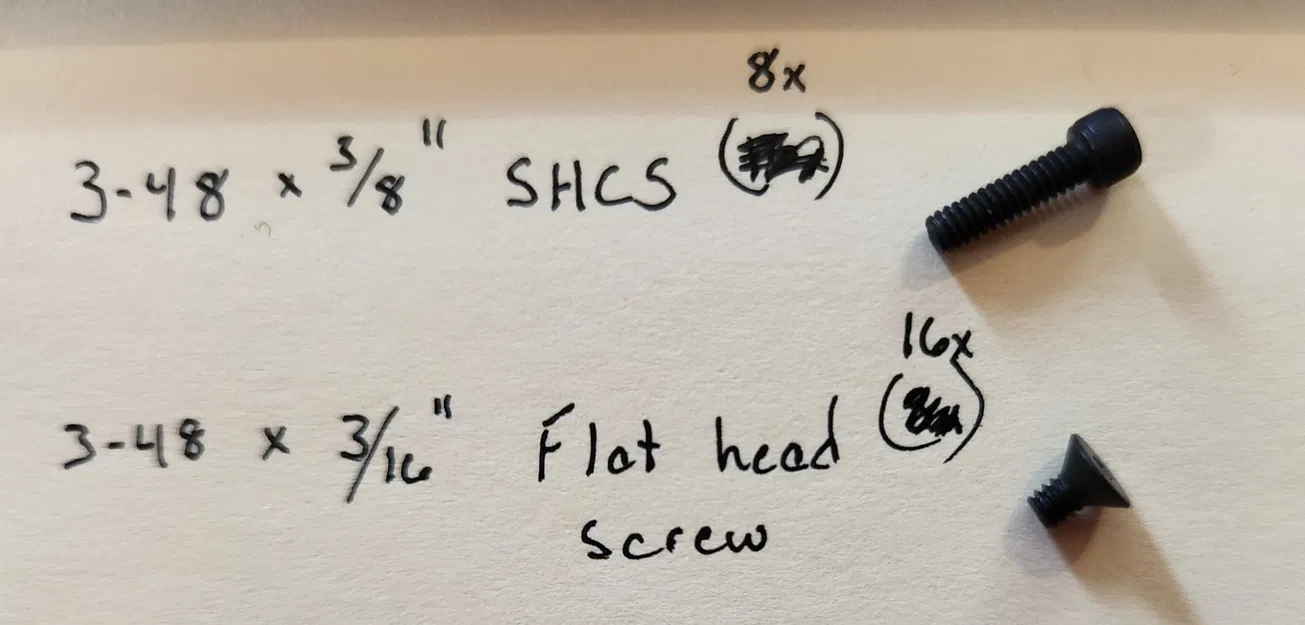 8x
3-48 x 3/8" SHCS ( )
16x
3-48 x 3/16" Flat head ( )
screw